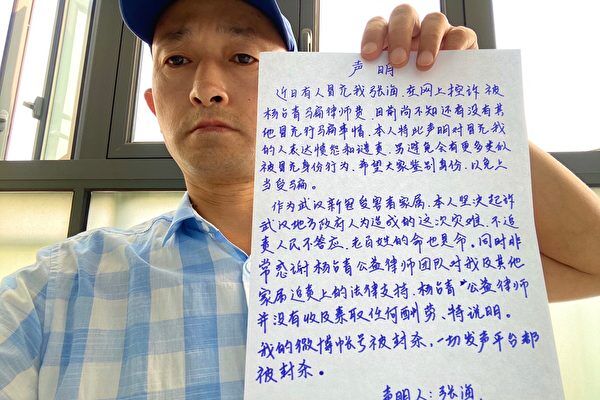 声明
近日有人冒充我张海,在网上控诉被
杨占青骗律师费,目前尚不知还有没有其
他冒充行骗事情。本人特此声明对冒充我
的人表达愤怒和谴责。为避免会有更多类似
被冒充身份行为,希望大家鉴别身份,以免上
当受骗。
作为武汉新冠受害者家属,本人坚决起诉
武汉地方政府人为造成的这次灾难,不追
责人民不答应,老百姓的命也是命。同时非
常感谢杨占青公益律师团队对我及其他
家属追责上的法律支持,杨占青"公益律师
并没有收及索取任何酬劳、特说明。
我的微博帐号被封杀,一切发声平台都
被封杀。
声明人:张海